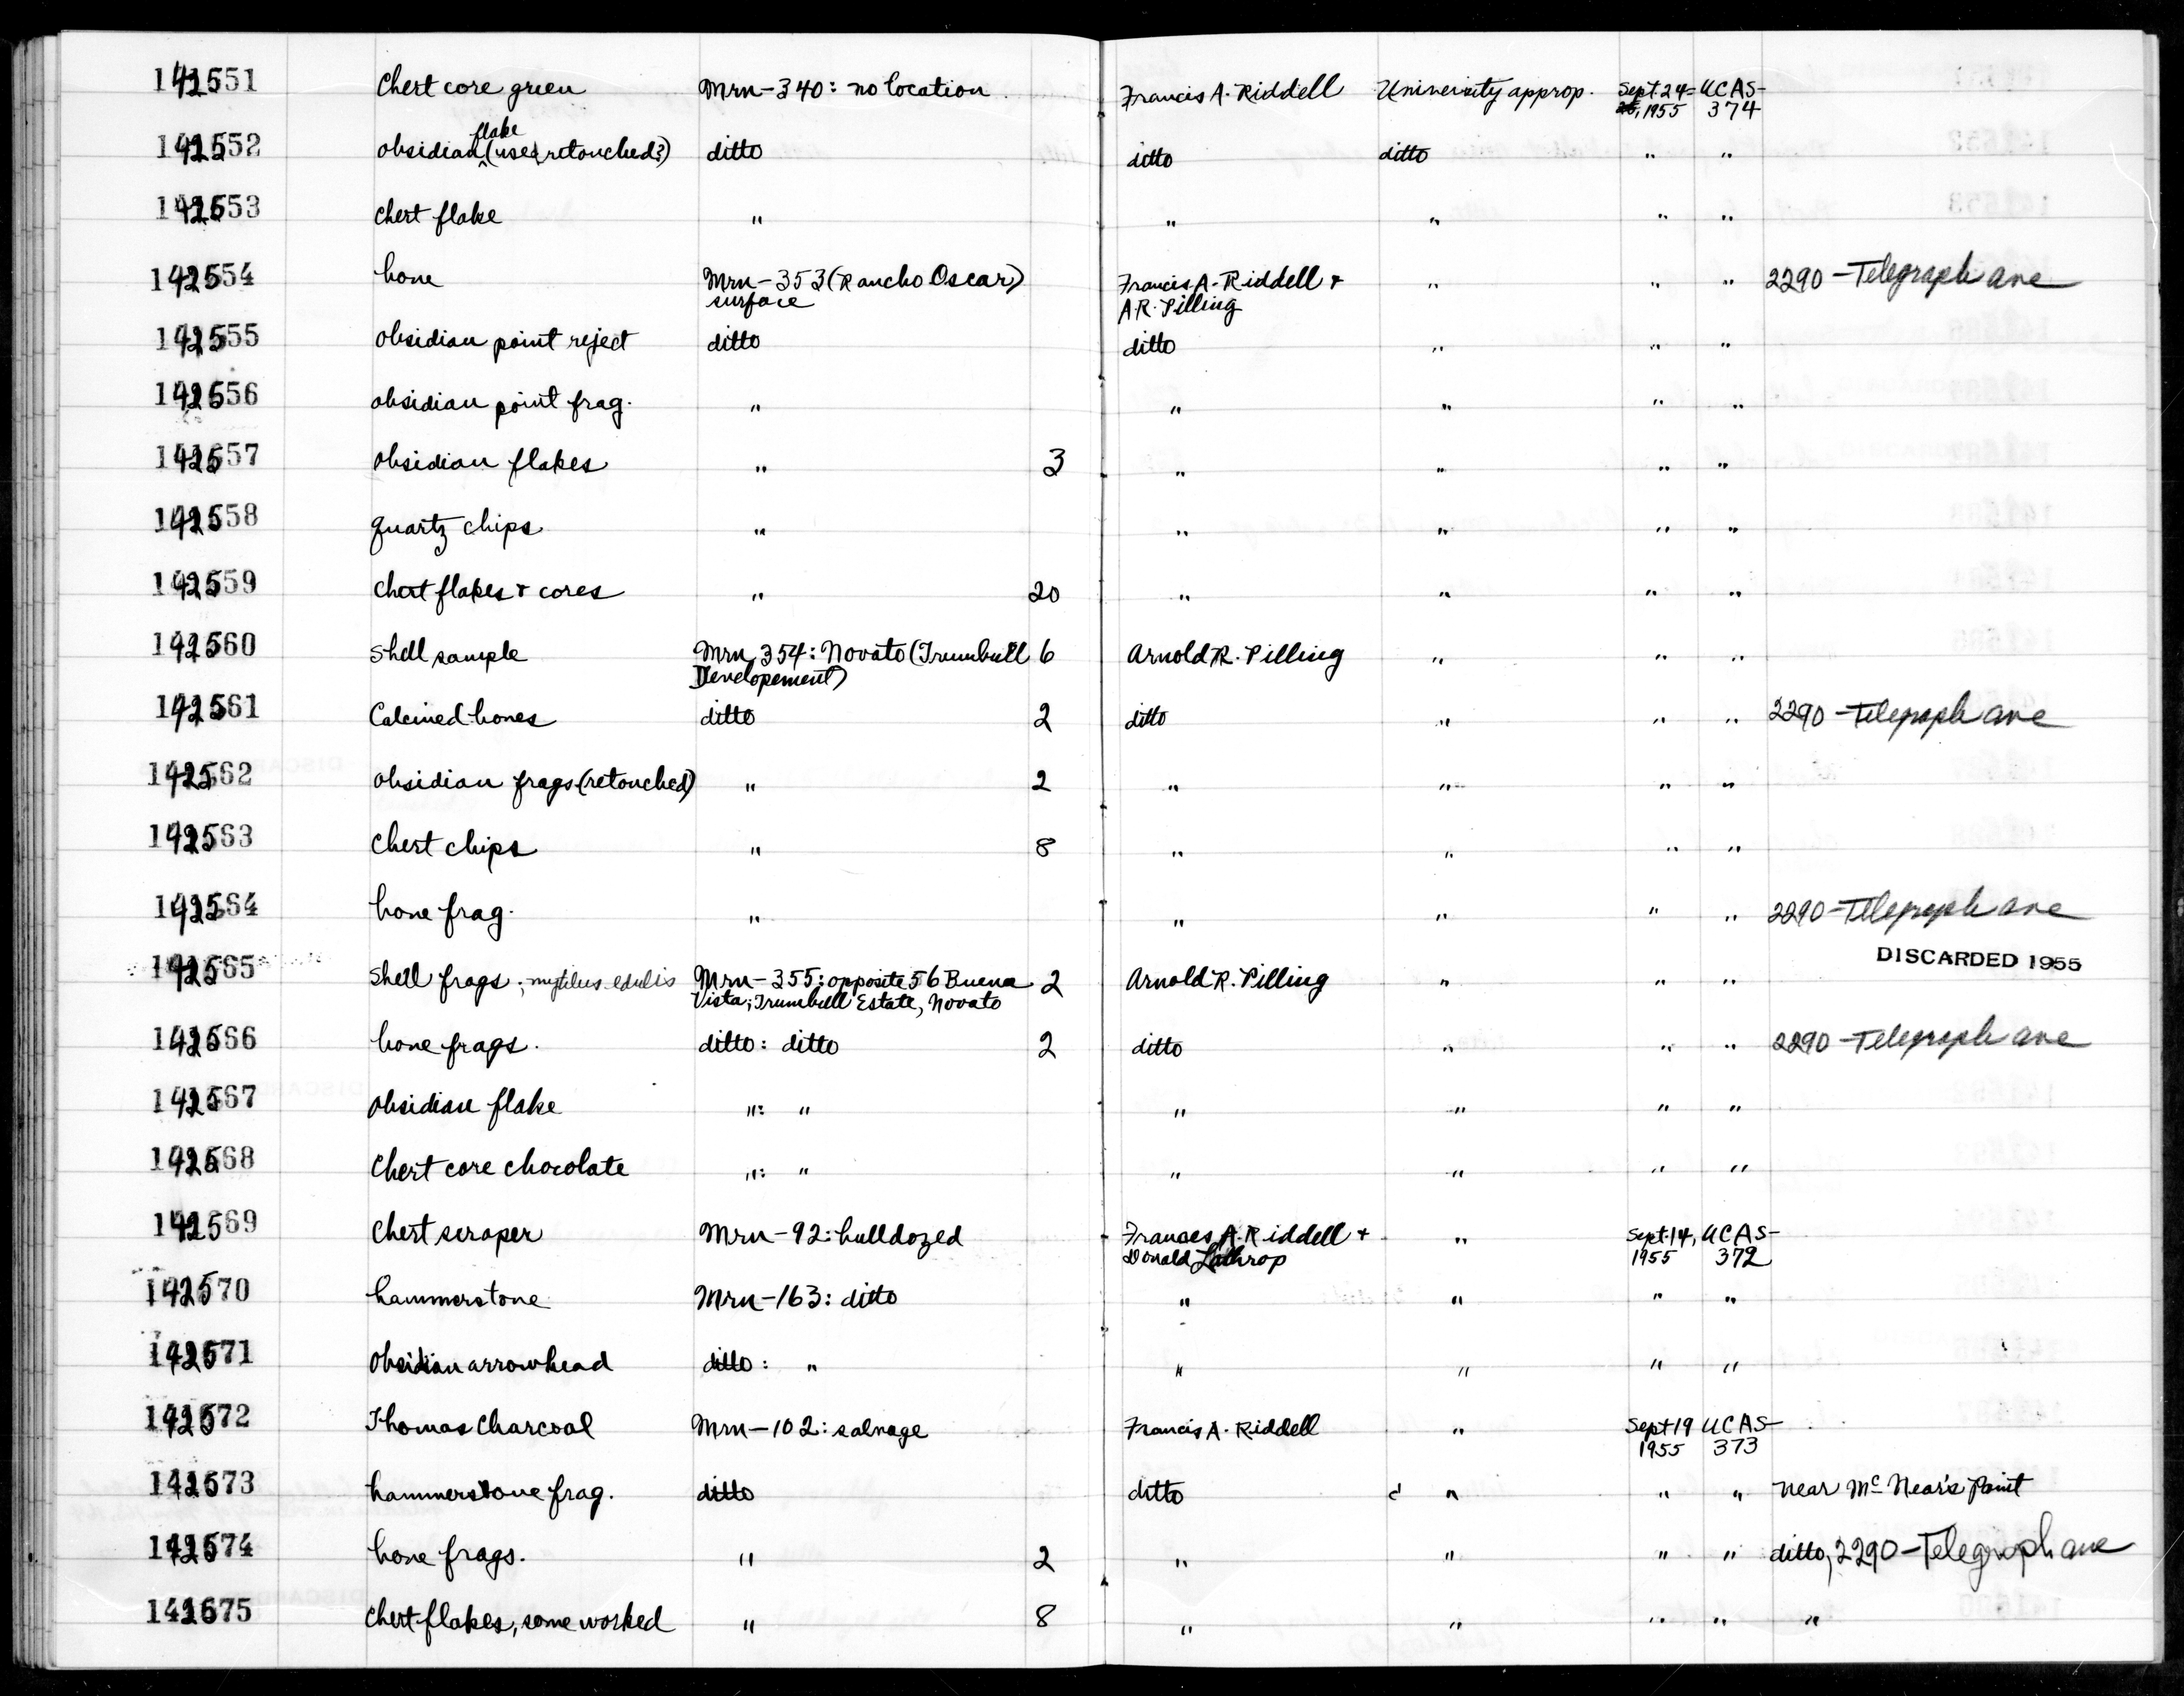 142551 Chert core green Mrn-340: no location Francis A. Riddell University approp. Sept. 24- UCAS-
25, 1955 374
flake
142552 obsidian (used, retouched?) ditto ditto ditto " "
142553 chert flake " " " " "
142554 bone Mrn-353 (Rancho Oscar) Francis A. Riddell + " " " 2290 - Telegraph ave
surface A.R. Pilling
142555 obsidian point reject ditto ditto " " "
142556 obsidian point frag. " " " " "
142557 obsidian flakes " 3 " " " "
142558 quartz chips " " " " "
142559 Chert flakes + cores " 20 " " " "
142560 Shell sample Mrn 354: Novato (Trumbull 6 Arnold R. Pilling " " "
Developement)
142561 Calcined bones ditto 2 ditto " " " 2290 - Telegraph ave
142562 obsidian frags (retouched) " 2 " " " "
142563 Chert chips " 8 " " " "
142564 bone frag. " " " " " 2290 - Telegraph ave
DISCARDED 1955
142565 Shell frags.; mytilus edulis Mrn-355: opposite 56 Buena 2 Arnold R. Pilling " " "
Vista; Trumbull Estate, Novato
142566 bone frags. ditto: ditto 2 ditto " " " 2290 - Telegraph ave
142567 obsidian flake ": " " " " "
142568 Chert core chocolate ": " " " " "
142569 Chert scraper Mrn-92: bulldozed Frances A. Riddell + " Sept. 14, UCAS-
Donald Lathrop 1955 372
142570 hammerstone Mrn-163: ditto " " " "
142571 Obsidian arrowhead ditto: " " " " "
142572 Thomas Charcoal Mrn-102: salvage Francis A. Riddell " Sept 19 UCAS-
1955 373
142573 hammerstone frag. ditto ditto " " " near Mc Near's Point
142574 bone frags. " 2 " " " " ditto, 2290 - Telegraph ave
142575 Chert flakes, some worked " 8 " " " " "